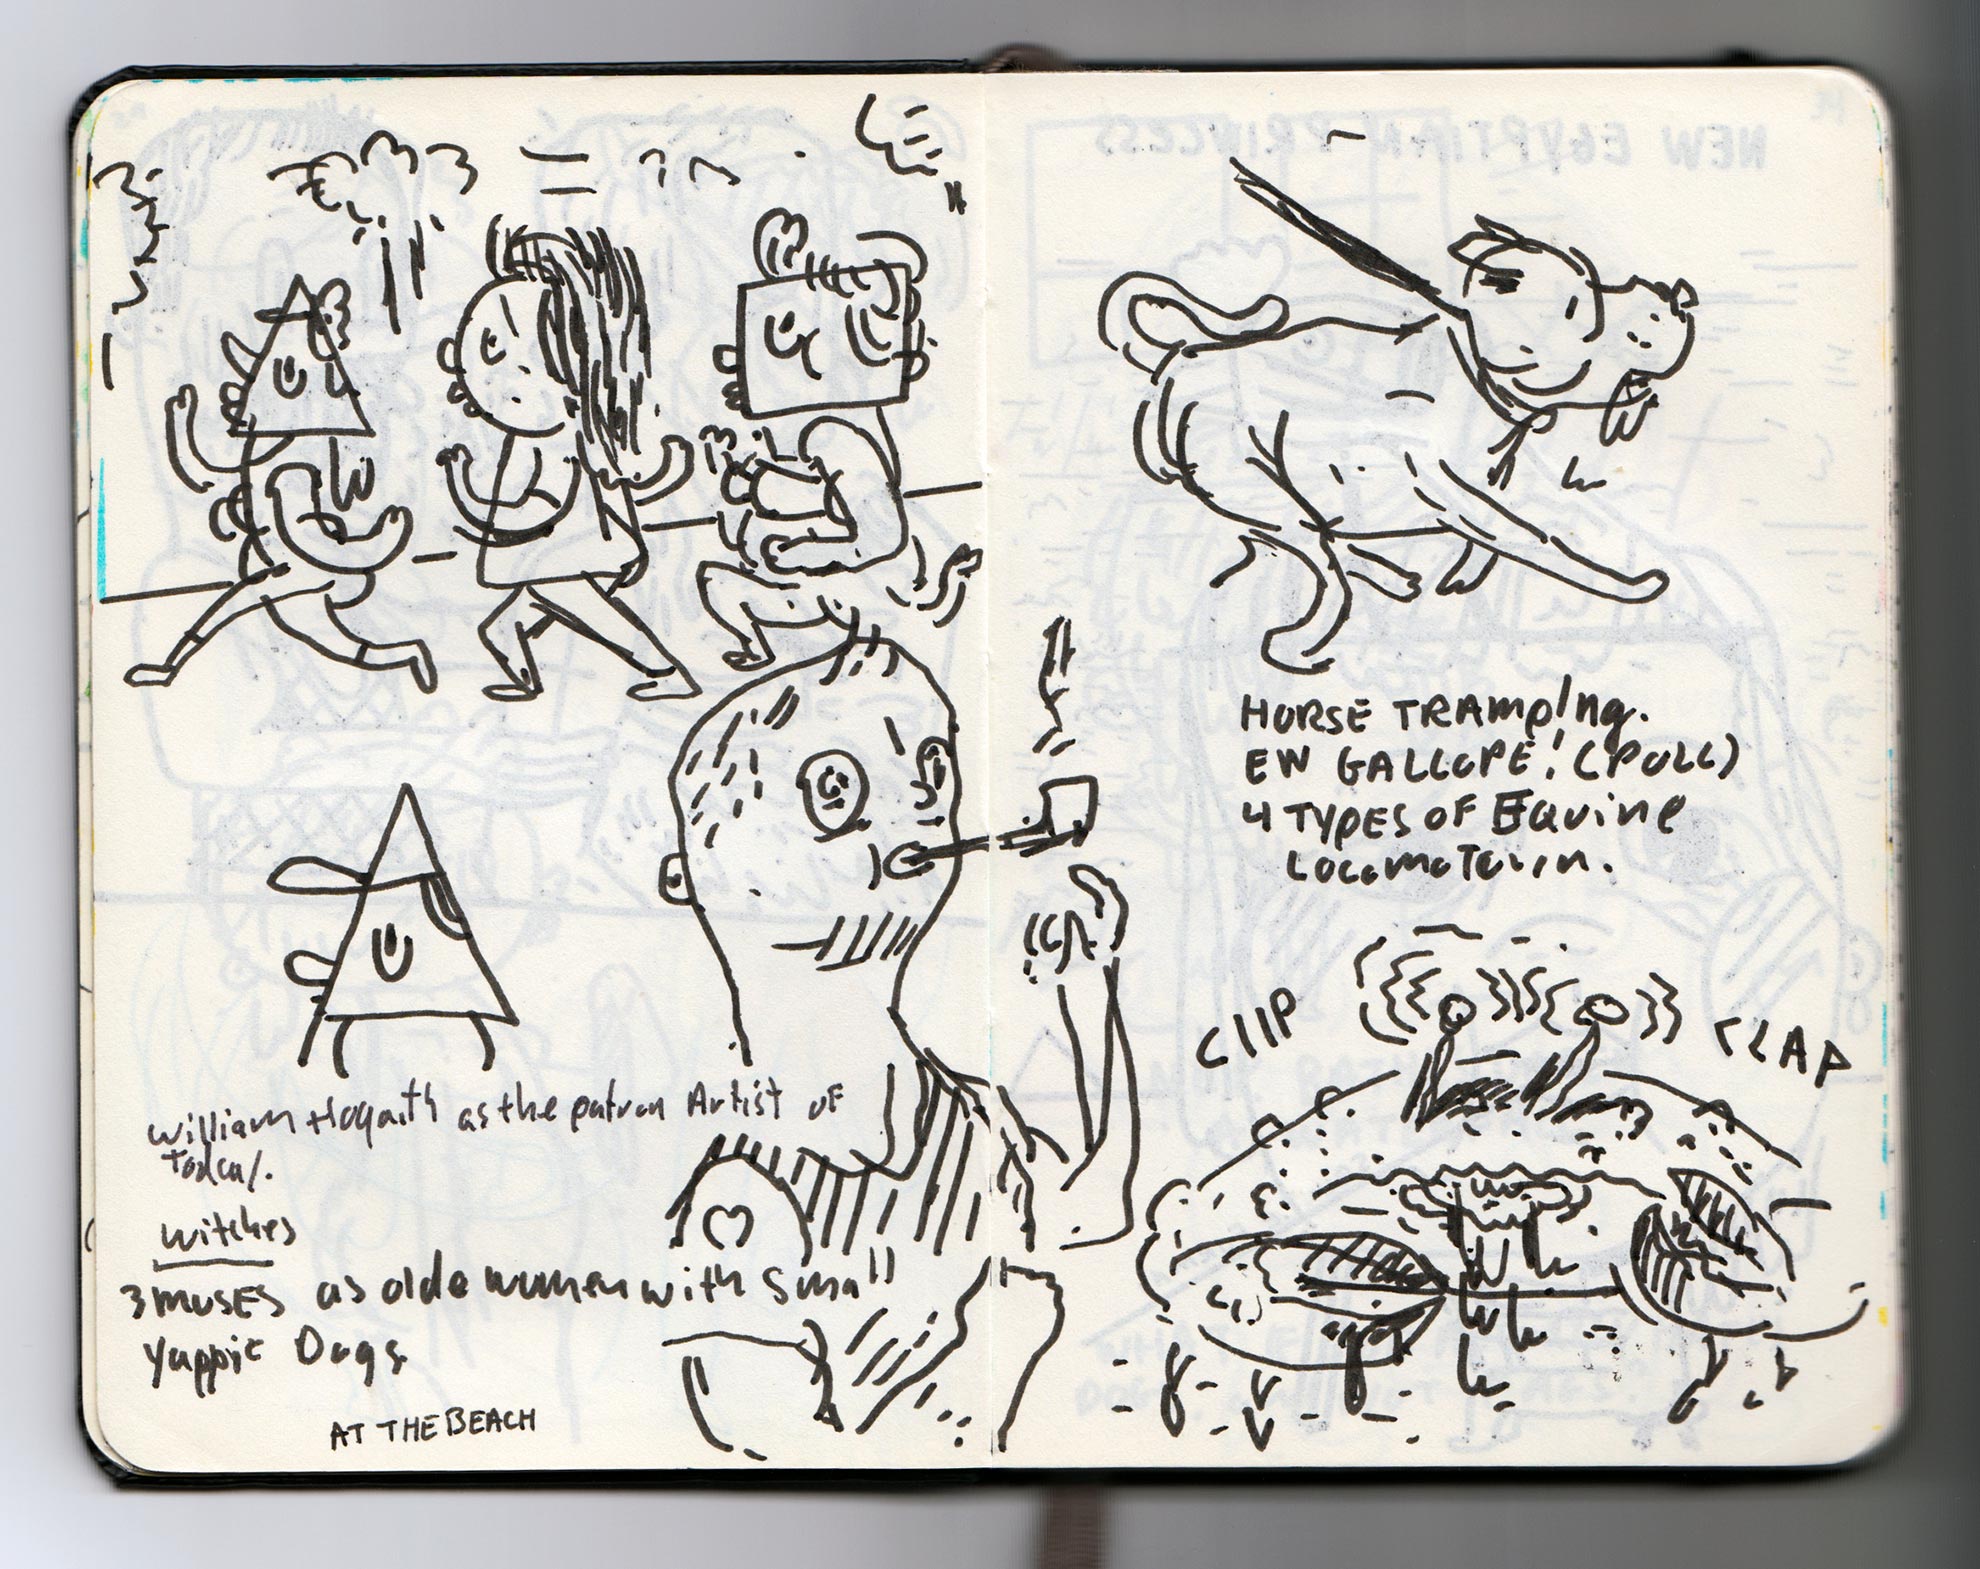 William Hogarth as the patron Artist of
Today.
Witches
3 MUSES as olde women with small
Yappie Dogs
AT THE BEACH
HORSE TRAMPING.
EN GALLOPE! (PULL)
4 TYPES OF Equine
LOCOMOTION.
CLIP
CLAP
NEW EGYPTIAN PRINCESS